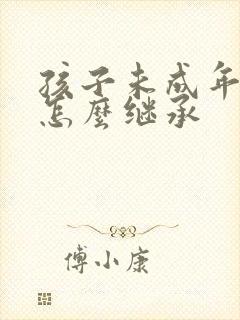 孩子未成年
怎麼继承
傅小康